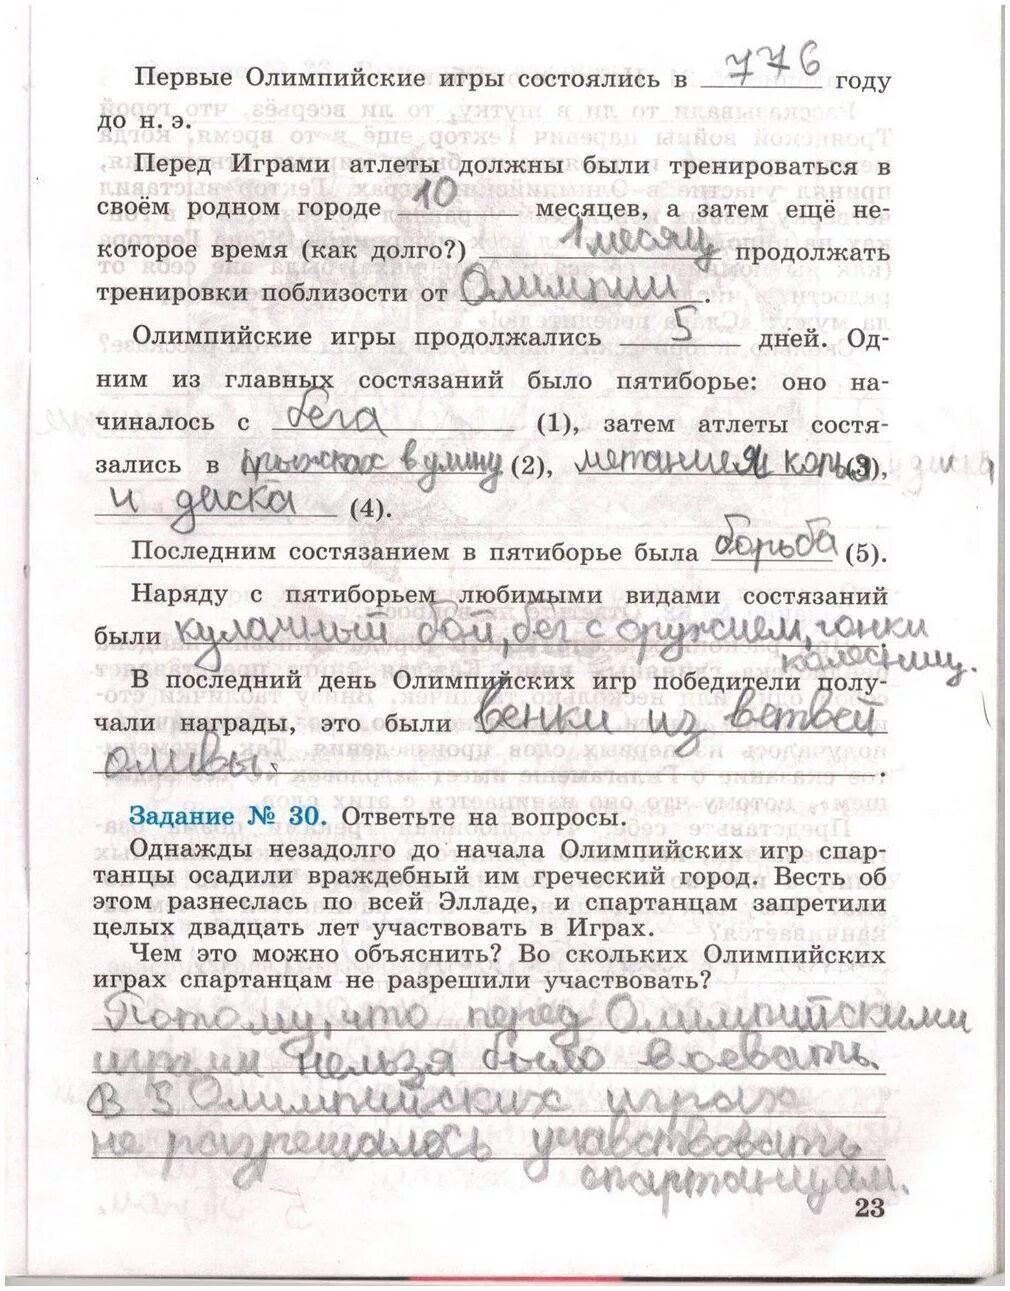 Первые Олимпийские игры состоялись в 776 году
до н. э.
Перед Играми атлеты должны были тренироваться в
своём родном городе 10 месяцев, а затем ещё не-
которое время (как долго?) 1 месяц продолжать
тренировки поблизости от Олимпии.
Олимпийские игры продолжались 5 дней. Од-
ним из главных состязаний было пятиборье: оно на-
чиналось с бега (1), затем атлеты состя-
зались в прыжках в длину (2), метания копья (3),
и диска (4).
Последним состязанием в пятиборье была борьба (5).
Наряду с пятиборьем любимыми видами состязаний
были кулачный бой, бег с оружием, гонки
колесниц.
В последний день Олимпийских игр победители полу-
чали награды, это были венки из ветвей
оливы.
Задание № 30. Ответьте на вопросы.
Однажды незадолго до начала Олимпийских игр спар-
танцы осадили враждебный им греческий город. Весть об
этом разнеслась по всей Элладе, и спартанцам запретили
целых двадцать лет участвовать в Играх.
Чем это можно объяснить? Во скольких Олимпийских
играх спартанцам не разрешили участвовать?
Потому, что перед Олимпийскими
играми нельзя было воевать.
В 5 Олимпийских играх
не разрешалось учавствовать
спартанцам.
23